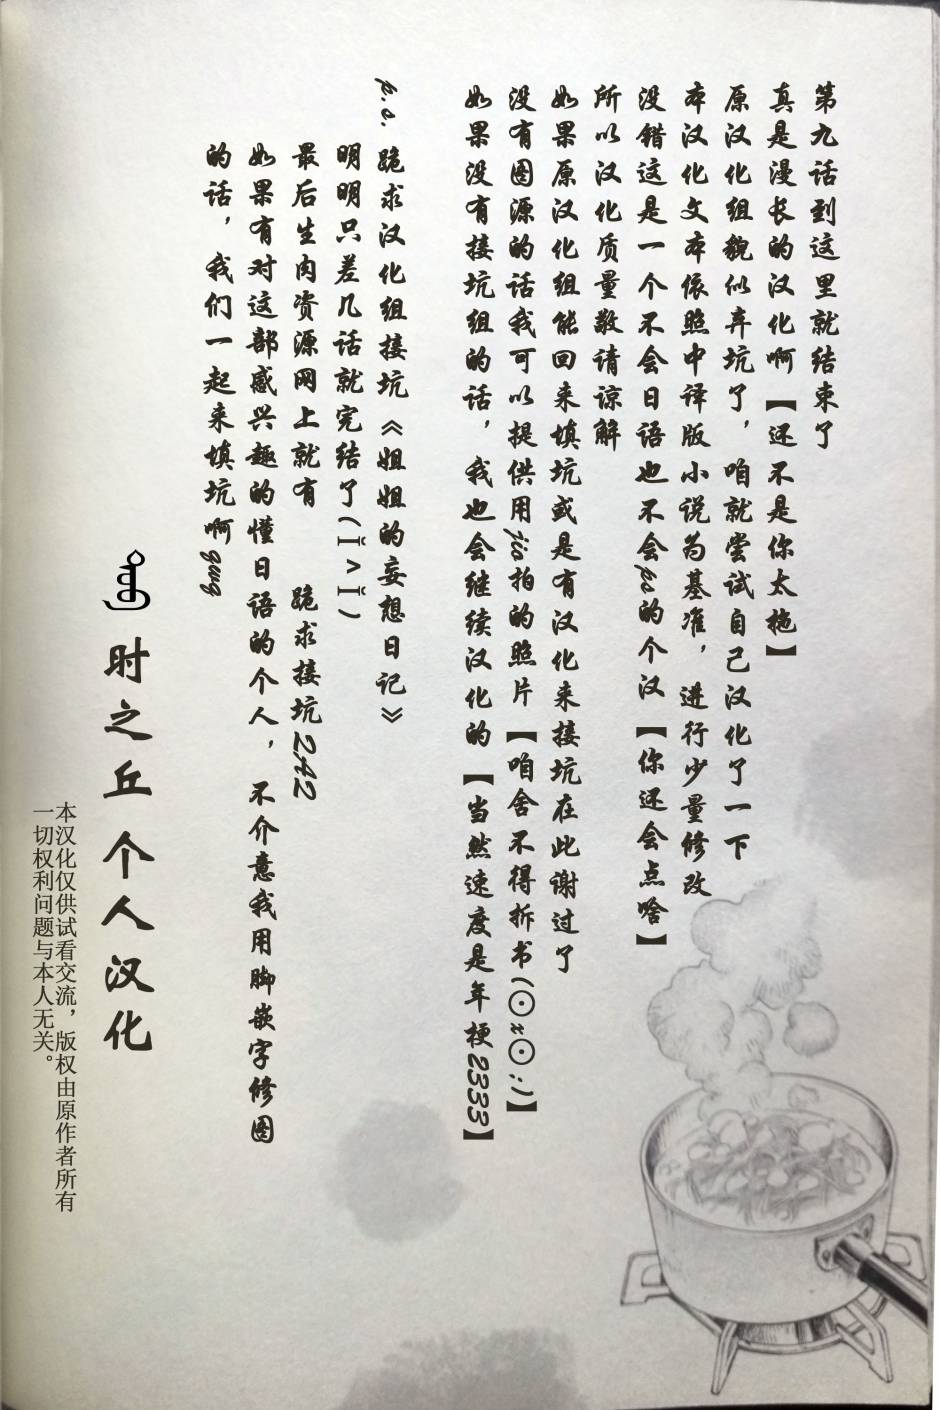 第九话到这里就结束了
真是漫长的汉化啊【还不是你太拖】
原汉化组貌似弃坑了，咱就尝试自己汉化了一下
本汉化文本依照中译版小说为基准，进行少量修改
没错这是一个不会日语也不会ps的个汉【你还会点啥】
所以汉化质量敬请谅解
如果原汉化组能回来填坑或是有汉化来接坑在此谢过了
没有图源的话我可以提供用jio拍的照片【咱舍不得拆书(⊙x⊙;)】
如果没有接坑组的话，我也会继续汉化的【当然速度是年梗2333】
p.s.跪求汉化组接坑《姐姐的妄想日记》
明明只差几话就完结了(ＴＴ^ＴＴ)
最后生肉资源网上就有 跪求接坑2A2
如果有对这部感兴趣的懂日语的个人，不介意我用脚嵌字修图
的话，我们一起来填坑啊qwq
时之丘个人汉化
本汉化仅供试看交流，版权由原作者所有
一切权利问题与本人无关。